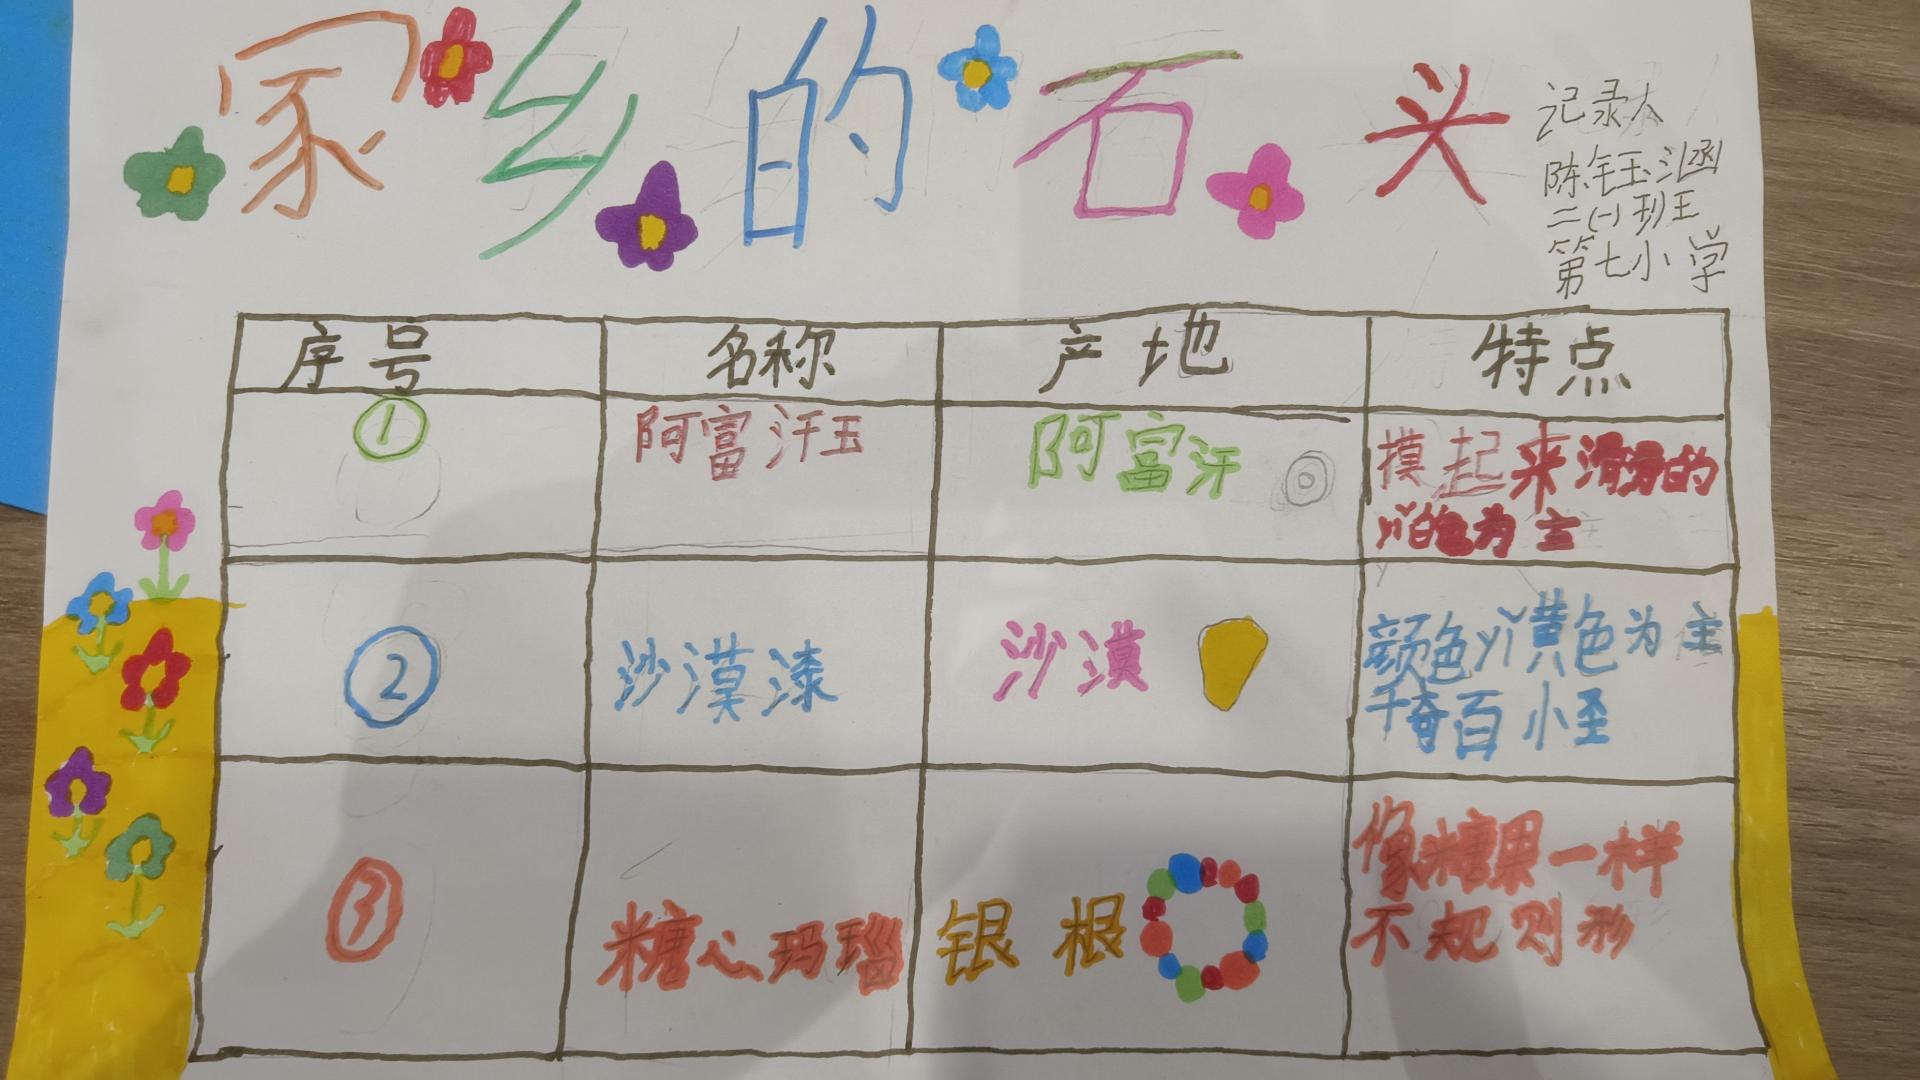 家乡的石头
记录人
陈钰涵
二(一)班
第七小学
序号 名称 产地 特点
① 阿富汗玉 阿富汗 摸起来滑滑的
以白色为主
② 沙漠漆 沙漠 颜色以黄色为主
千奇百小怪
③ 糖心玛瑙 银根 像糖果一样
不规则形